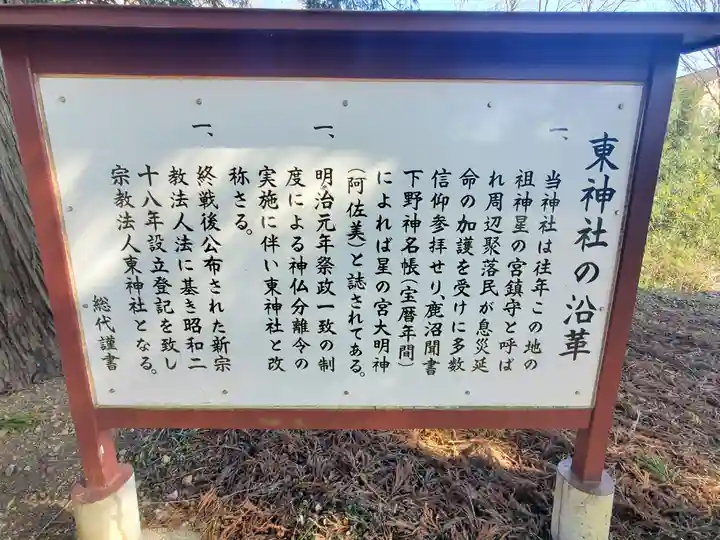 東神社の沿革
一、
当神社は往年この地の
祖神星の宮鎮守と呼ば
れ周辺聚落民が息災延
命の加護を受けに多数
信仰参拝せり、鹿沼聞書
下野神名帳(宝暦年間)
によれば星の宮大明神
(阿佐美)と誌されてある。
一、
明治元年祭政一致の制
度による神仏分離令の
実施に伴い東神社と改
称さる。
一、
終戦後公布された新宗
教法人法に基き昭和二
十八年設立登記を致し
宗教法人東神社となる。
総代謹書